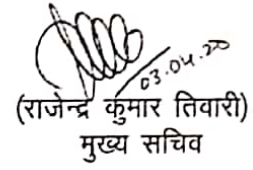 03.04.20
(राजेन्द्र कुमार तिवारी)
मुख्य सचिव